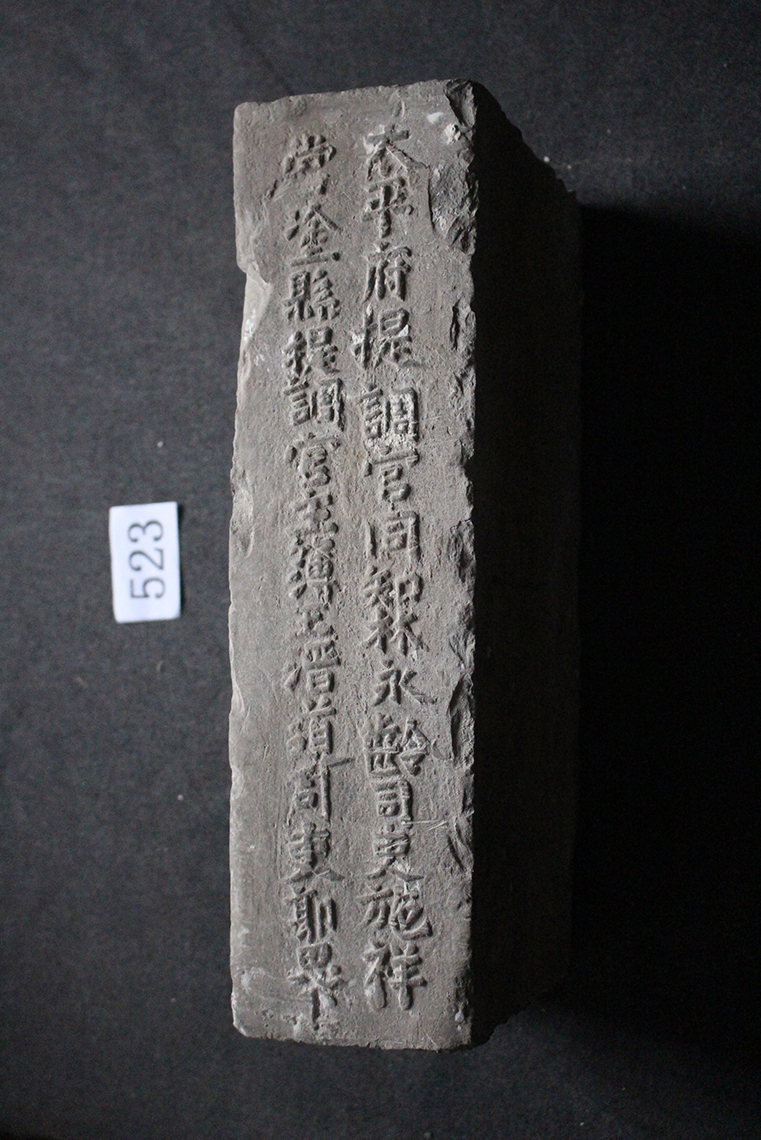 太平府提調官同知林永齡司吏施祥
當塗縣提調官主簿 司吏
523